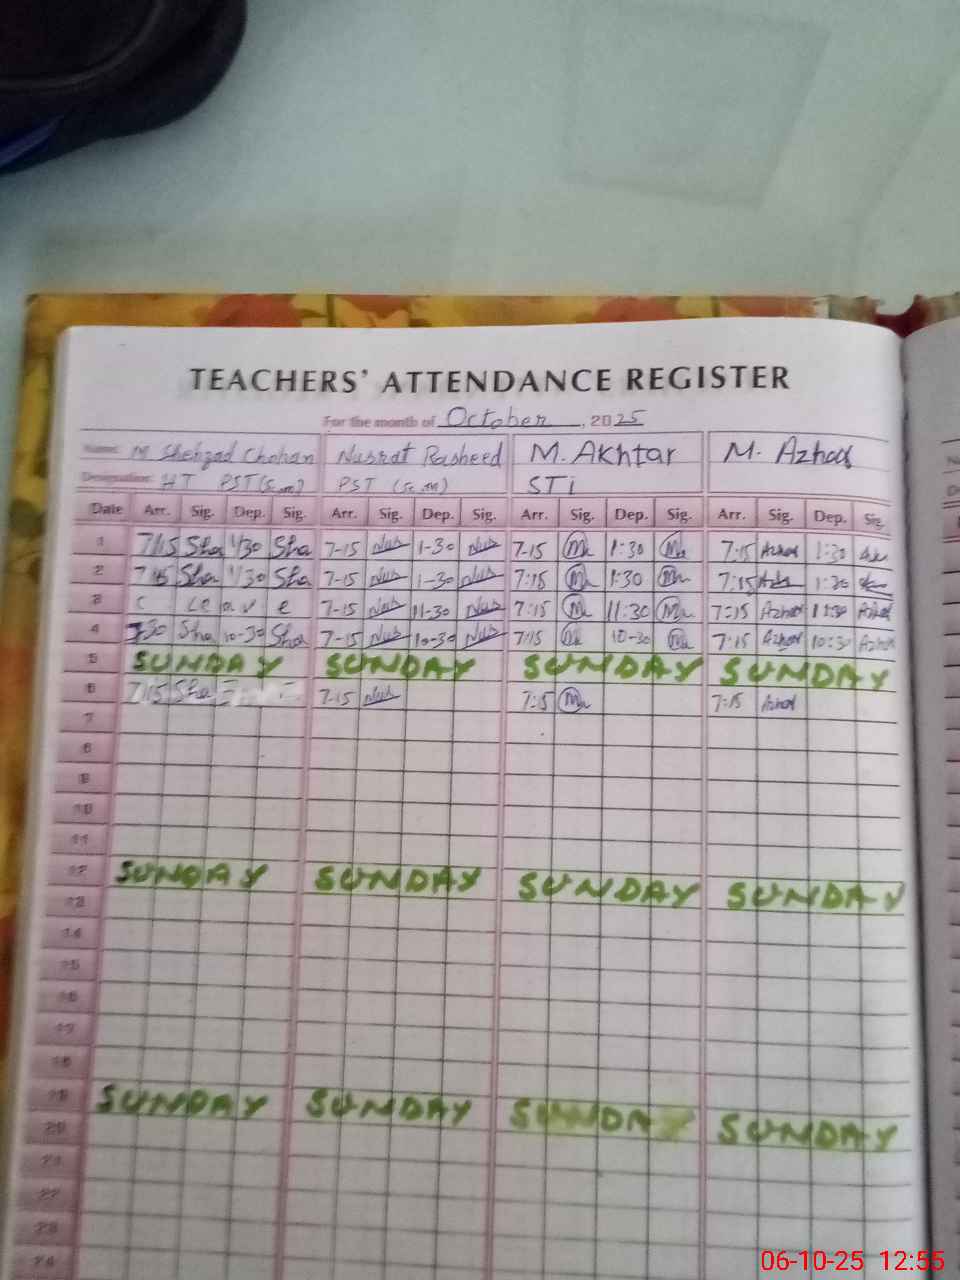 TEACHERS' ATTENDANCE REGISTER
For the month of October, 2025
Name: M Shehzad Chohan Nusrat Rasheed M. Akhtar M. Azhar
Designation: HT PST (Sc.m) PST (Sc.m) STi
Date Arr. Sig. Dep. Sig. Arr. Sig. Dep. Sig. Arr. Sig. Dep. Sig. Arr. Sig. Dep. Sig.
1 7/15 Sha 1/30 Sha 7-15 Nus 1-30 Nus 7-15 1:30 7:15 Azhar 1:30
2 7/15 Sha 1/30 Sha 7-15 Nus 1-30 Nus 7:15 1:30 7:15 1:30
3 C Leave 7-15 Nus 11-30 Nus 7:15 11:30 7:15 Azhar 11:30 Azhar
4 7-30 Sha 10-30 Sha 7-15 Nus 10-30 Nus 7:15 10-30 7:15 Azhar 10:30 Azhar
5 SUNDAY SUNDAY SUNDAY SUNDAY
6 7/15 Sha 7-15 Nus 7:15 7:15 Azhar
7
8
9
10
11
12 SUNDAY SUNDAY SUNDAY SUNDAY
13
14
15
16
17
18
19 SUNDAY SUNDAY SUNDAY SUNDAY
20
21
22
23
24
06-10-25 12:55